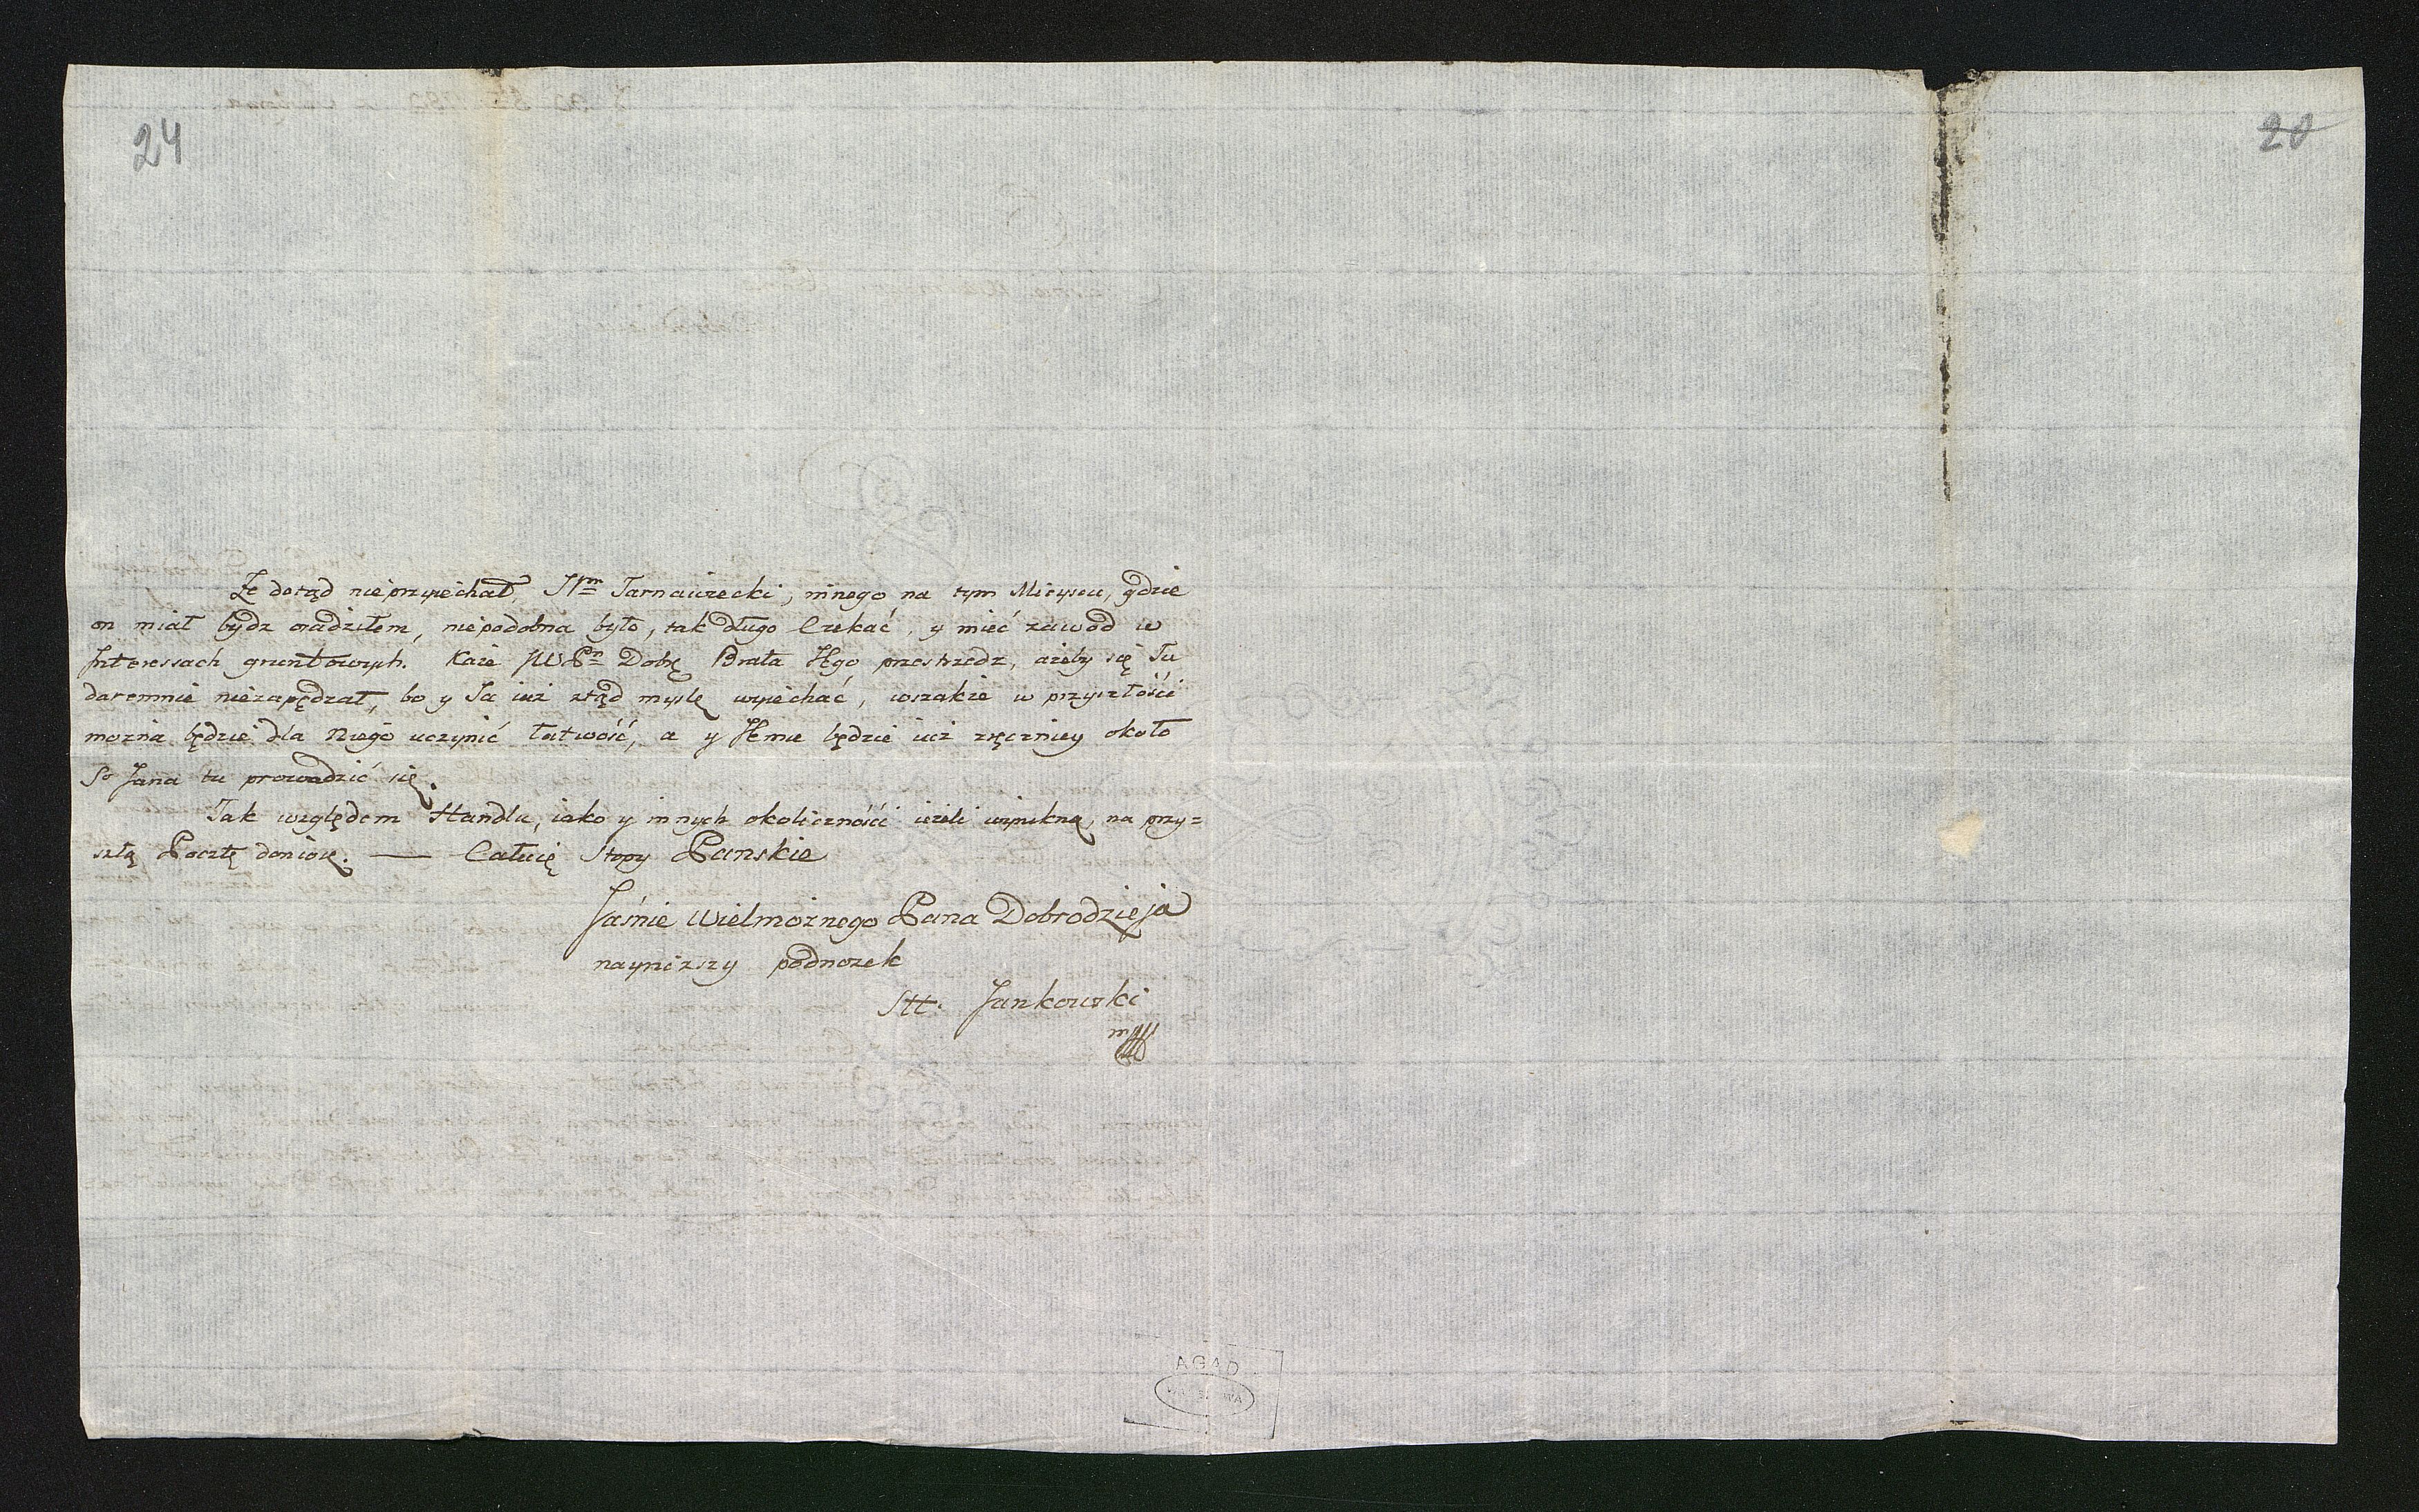 24
20
Że dotąd nieprzyiechał, JPan Tarnawiecki, innego na tym Mieyscu, gdzie
on miał bydz osadziłem, niepodobna było, tak długo Czekać, y mieć zawod w
Interessach gruntowych. Każe JWPn Dobr Brata Jego przestrzedz, ażeby się Tu
daremnie niezapędzał, bo y Ja iuż ztąd myslę wyiechać, wszakże w przyszłości
mozna będzie dla Niego uczynić łatwość, a y Jemu będzie iuż zręczniey około
So Jana tu prowadzić się.
Tak względem Handlu, iako y innych okoliczności ieżeli wynikną, na przy=
szłą Pocztę doniosę. — Całuię Stopy Panskie
Jaśnie Wielmożnego Pana Dobrodzieja
nayniższy podnozek
Stt. Jankowski
mp
AGAD
WARSZAWA